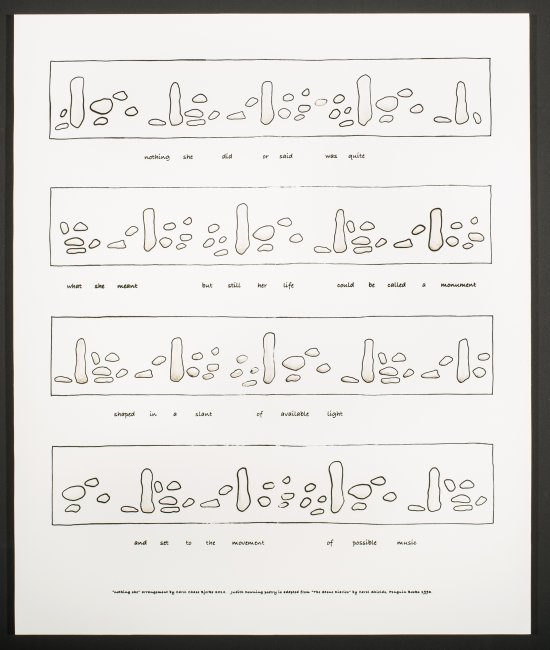 nothing she did or said was quite
what she meant but still her life could be called a monument
shaped in a slant of available light
and set to the movement of possible music
"nothing she" arrangement by Carol Chase Bjerke 2010. Judith Downing poetry is adapted from "The Stone Diaries" by Carol Shields, Penguin Books 1994.